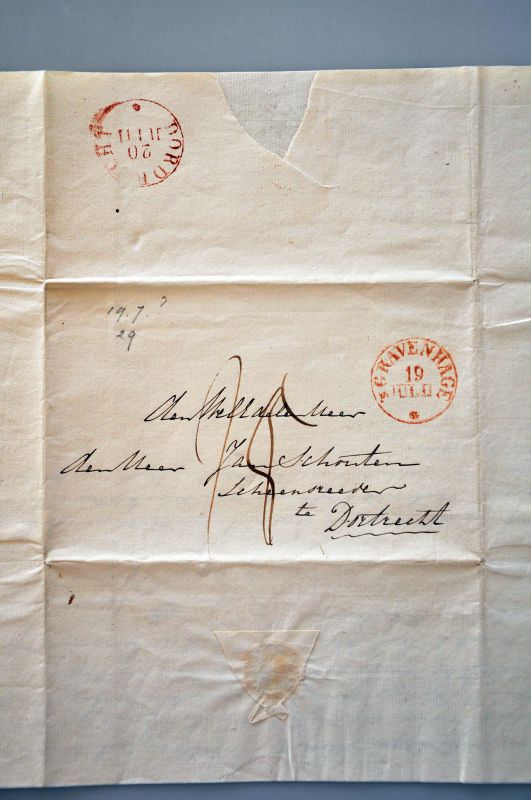 DORDRECHT
20
JULIJ
19.7.?
29
'S GRAVENHAGE
19
JULIJ
den Weledelen Heer
den Heer Jan Schouten
Scheepsreeder
te Dortrecht